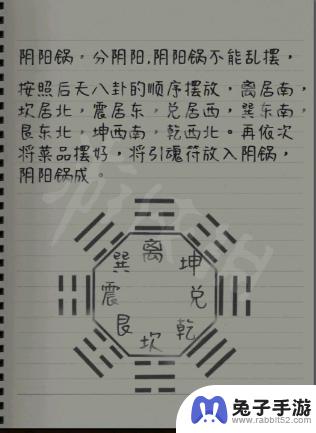 阴阳锅，分阴阳，阴阳锅不能乱摆，
按照后天八卦的顺序摆放，离居南，
坎居北，震居东，兑居西，巽东南，
艮东北，坤西南，乾西北。再依次
将菜品摆好，将引魂符放入阴锅，
阴阳锅成。
离
巽 坤
震 兑
艮 乾
坎
兔子手游
www.rabbit52.com